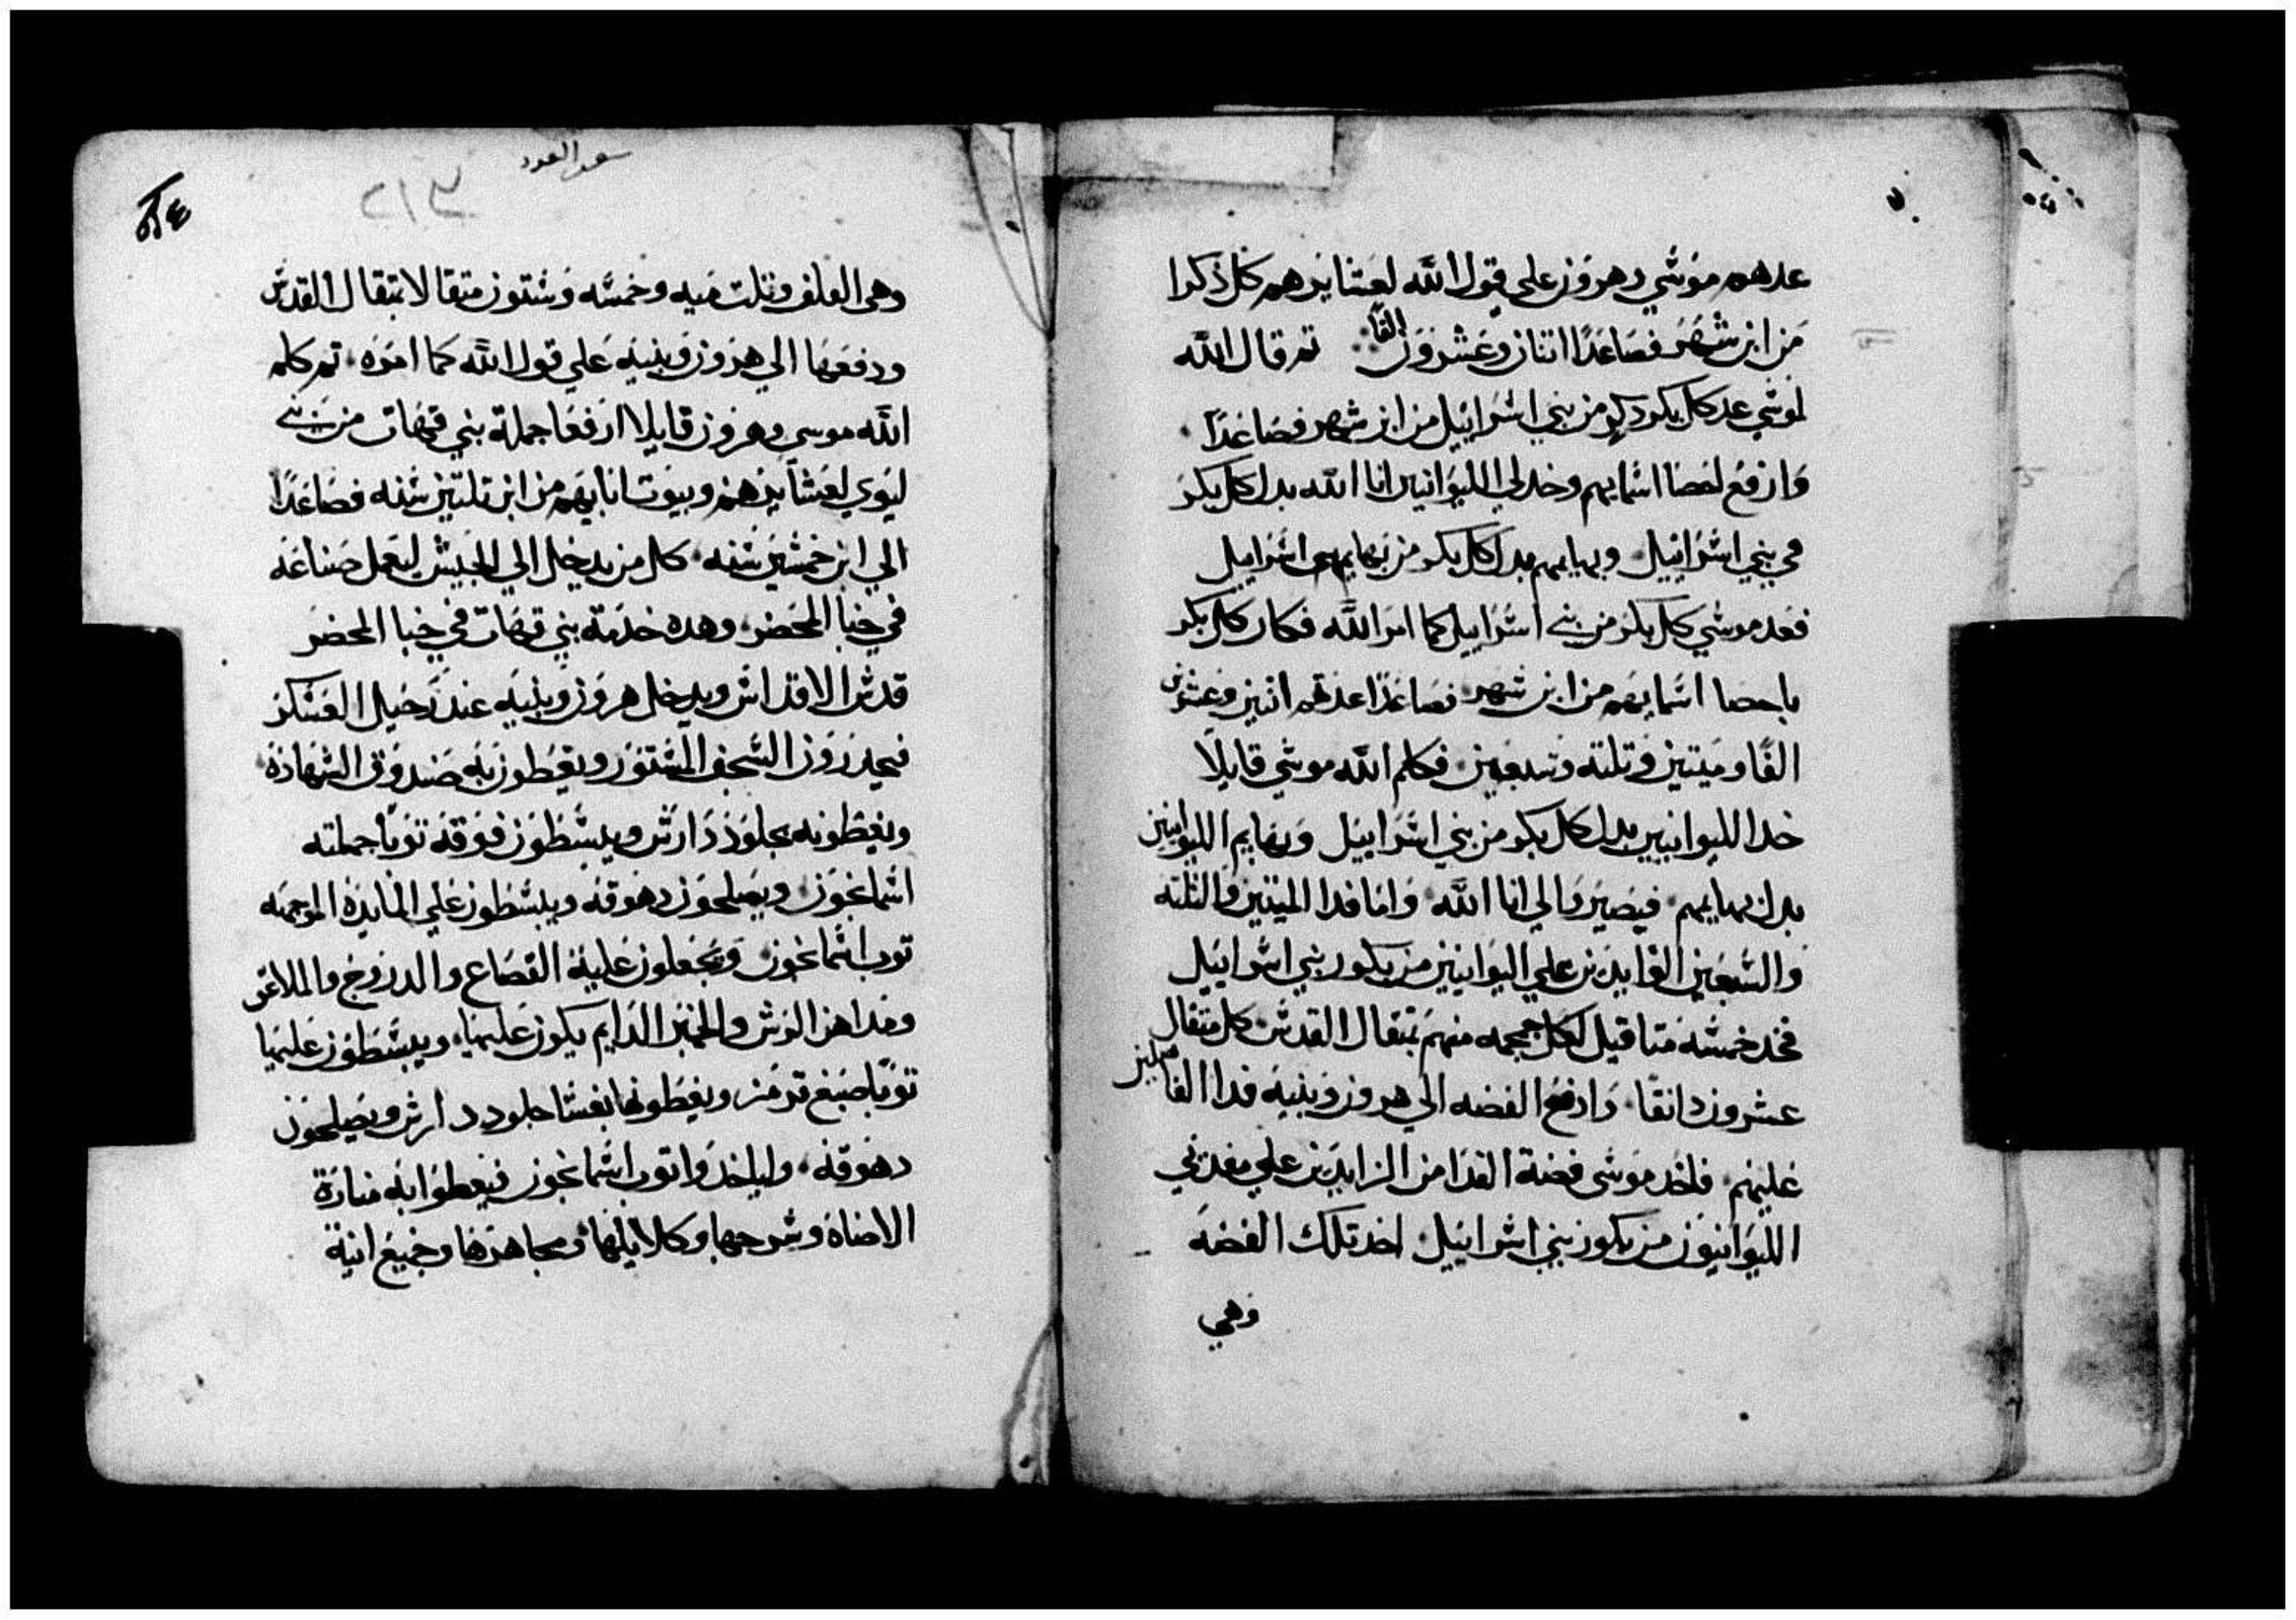 عدهم موسي وهرون علي قول الله لعشايرهم كل ذكرا
من ابن شهر فصاعدا اتنان وعشرون الفا ثم قال الله
لموسي عد كل بكر دكر من بني اسراييل من ابن شهر فصاعدا
وارفع لحصا اسمايهم وخد لي الليوانيين انا الله بدل كل بكر
في بني اسراييل وبهايمهم بدل كل بكر من بهايم بني اسراييل
فعد موسي كل بكر من بني اسراييل كما امر الله فكان كل بكر
باحصا اسمايهم من ابن شهر فصاعدا عدتهم اتنين وعشرين
الفا وميتين وتلته وسبعين فكلم الله موسي قايلا
خد الليوانيين بدل كل بكر من بني اسراييل وبهايم الليوانيين
بدل بهايمهم فيصيروا لي انا الله واما فدا الميتين والتلته
والسبعين الزايدين علي اليوانيين من بكور بني اسراييل
فخد خمسه متاقيل لكل جمجمه منهم بمتقال القدس كل متقال
عشرون دانقا وادفع الفضه الي هرون وبنيه فدا الفاضلين
عليهم فاخد موسي فضة الفدا من الزايدين علي مفديي
الليوانيون من بكور بني اسراييل اخد تلك الفضه
وهي
سفر العدد
٢١٣
وهي الف وتلت ميه وخمسه وستون متقالا بمتقال القدس
ودفعها الي هرون وبنيه علي قول الله كما امره ثم كلم
الله موسي وهرون قايلا ارفعا جملة بني قهات من بني
ليوي لعشايرهم وبيوت ابايهم من ابن تلتين سنه فصاعدا
الي ابن خمسين سنه كل من يدخل الي الجيش ليعمل صناعه
في خبا المحضر وهده خدمة بني قهات في خبا المحضر
قدس الاقداس ويدخل هرون وبنيه عند رحيل العسكر
فيحدرون السجف المستور ويغطون به صندوق الشهادة
ويغطونه بجلود دارش ويبسطون فوقه توبا جملته
اسمانجون ويصلحون دهوقه ويبسطون علي المايدة الموجهه
توب اسمانجون ويجعلون عليه القصاع والدروج والملاعق
ومداهن الرش والخبز الدايم يكون عليها ويبسطون عليها
توبا صبغ قرمز ويغطونها بغشا جلود دارش ويصلحون
دهوقه ولياخدوا توب اسمانجون فيغطوا به منارة
الاضاة وسرجها وكلاليبها ومجامرها وجميع انية